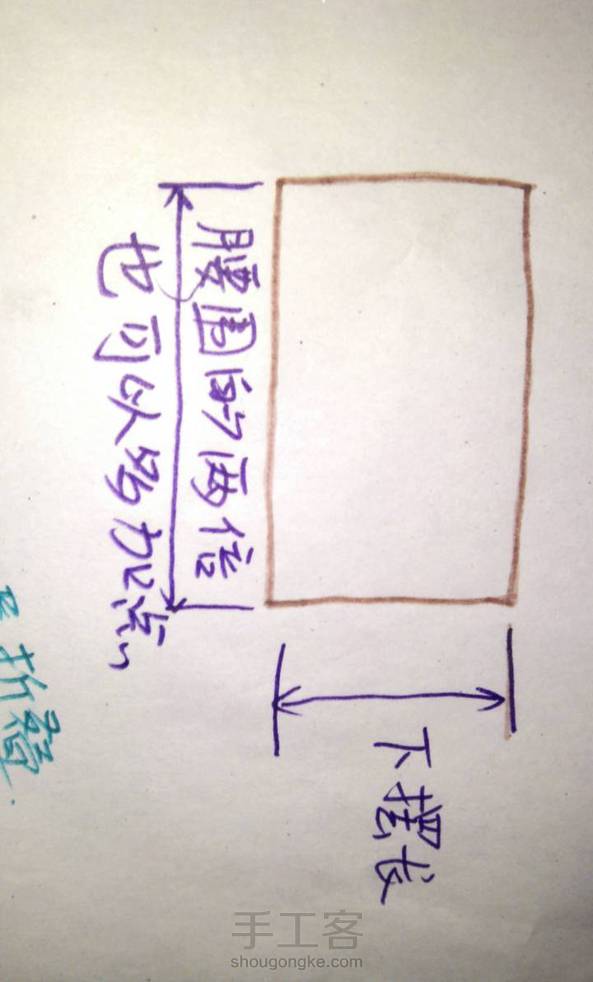 腰围的两倍
也可以多加点
下摆长
折叠
手工客
shougongke.com